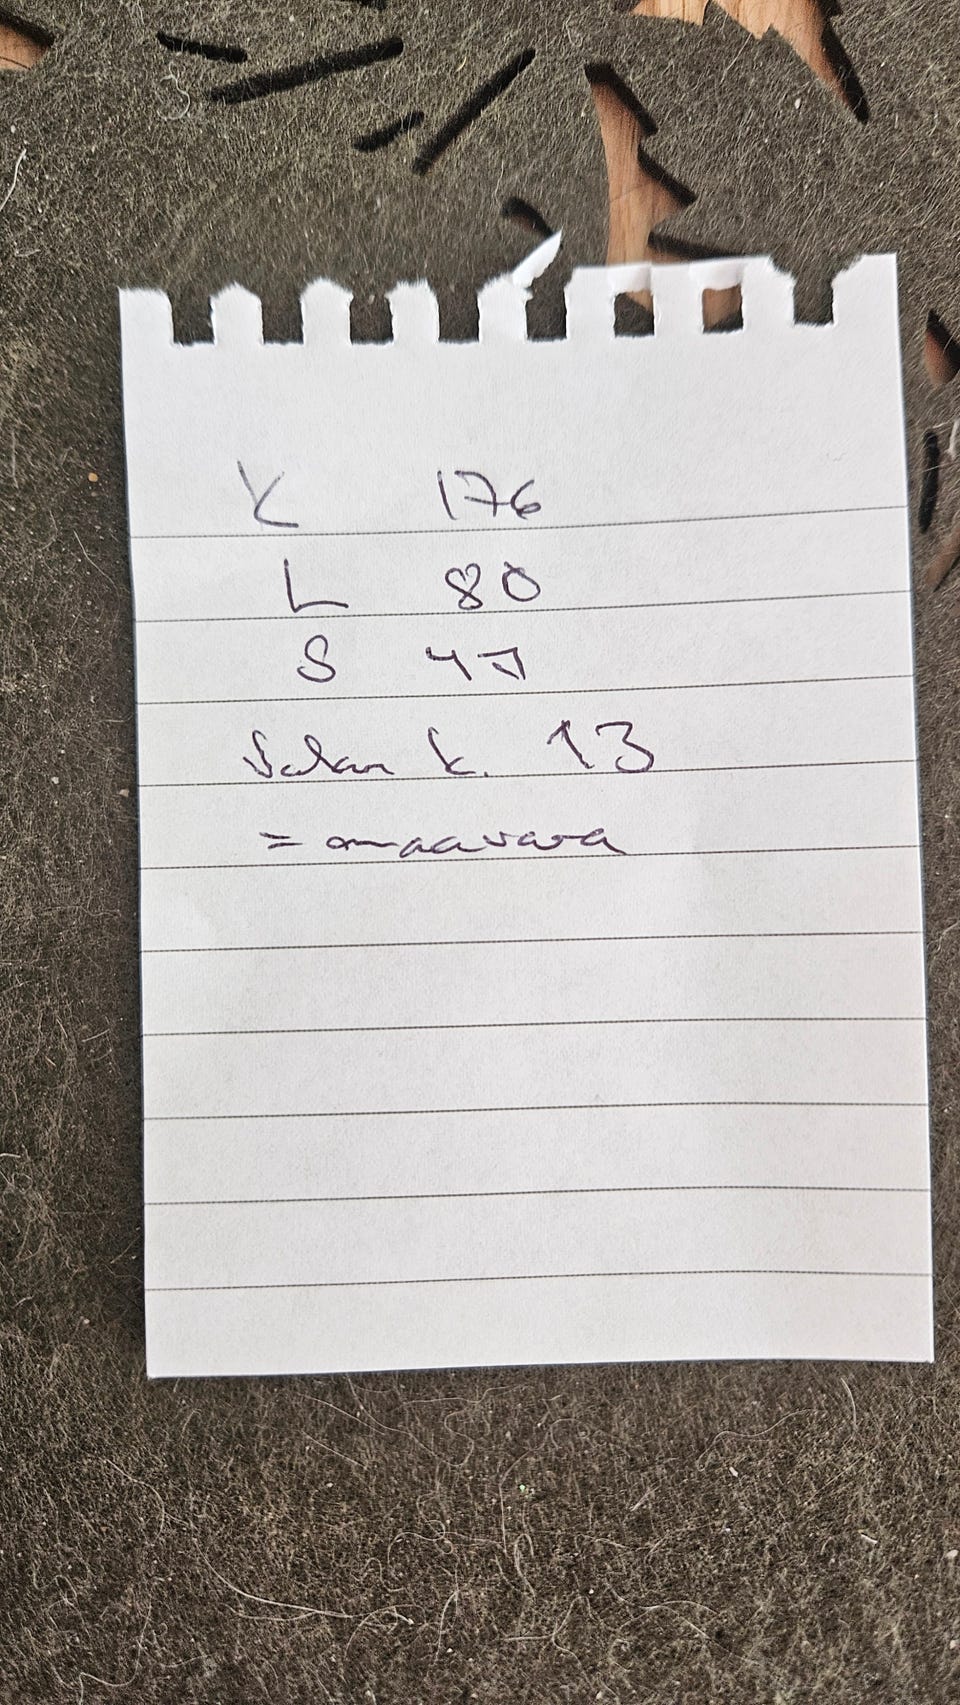 K 176
L 80
S 47
Jalan k. 13
= maavara